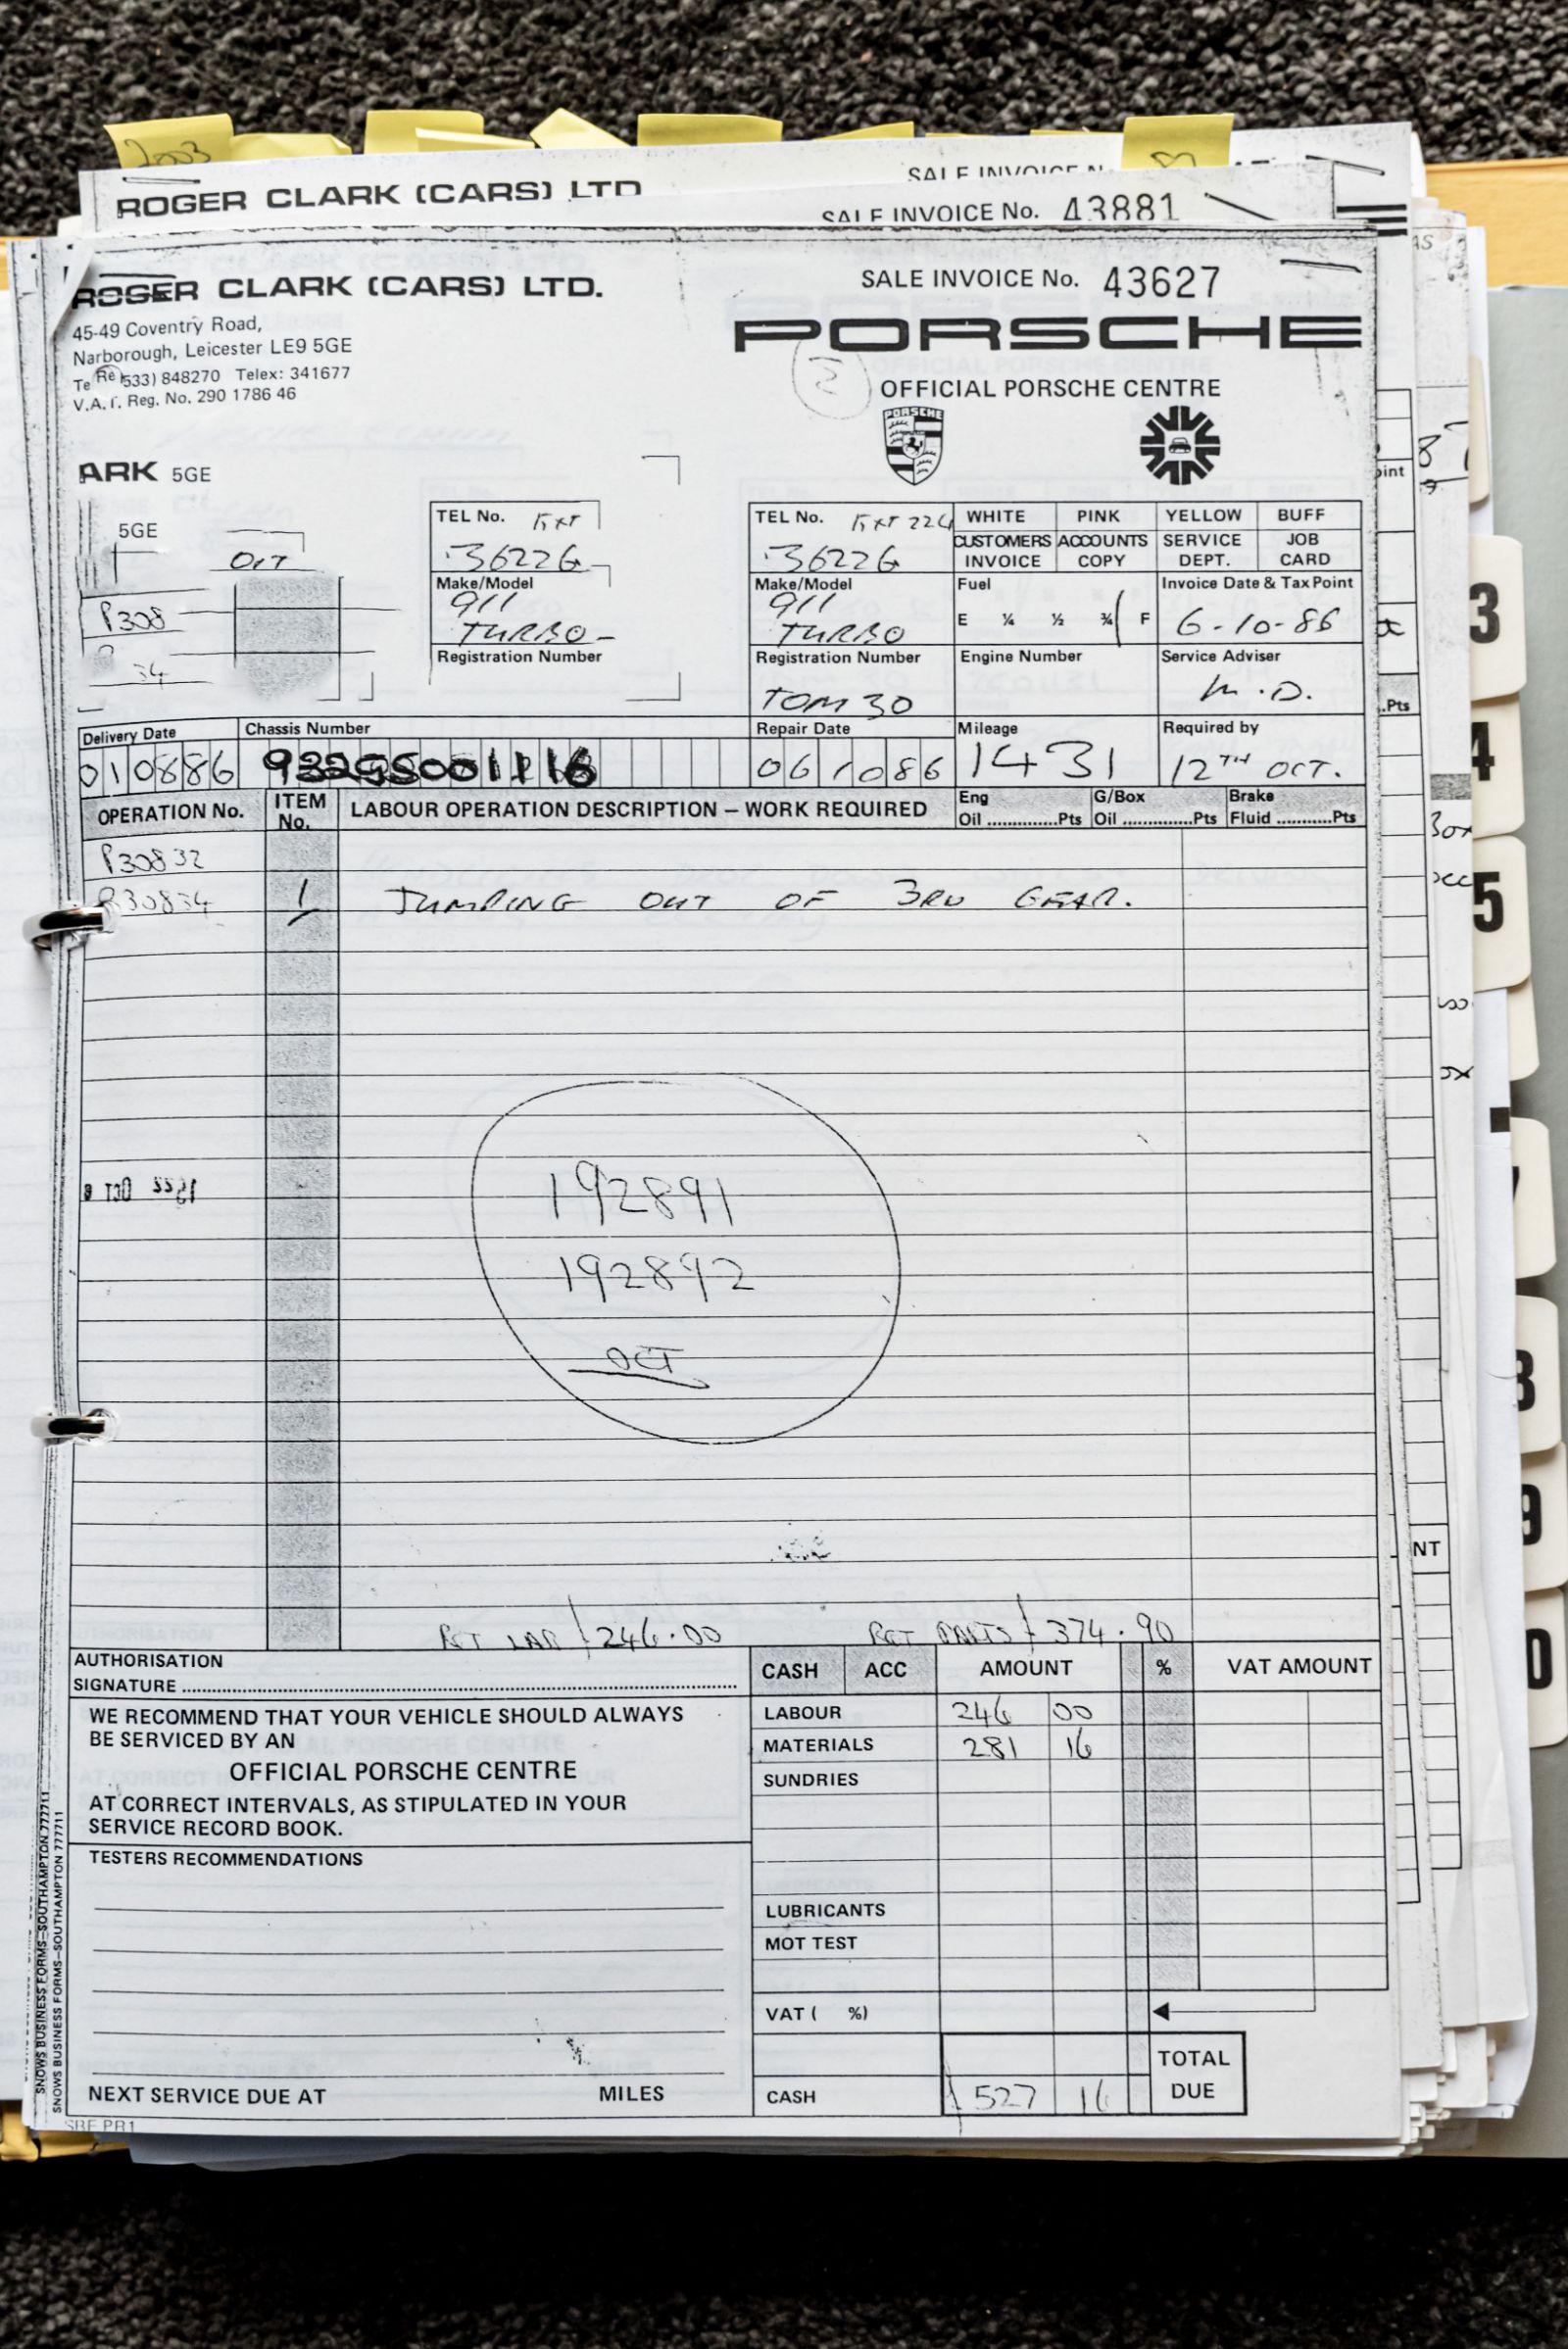 2003
SALE INVOICE N
ROGER CLARK (CARS) LTD
SALE INVOICE No. 43881
ROGER CLARK (CARS) LTD.
SALE INVOICE No. 43627
45-49 Coventry Road,
Narborough, Leicester LE9 5GE
Te Re 533) 848270 Telex: 341677
V.A.T. Reg. No. 290 1786 46
PORSCHE
2
OFFICIAL PORSCHE CENTRE
PORSCHE
ARK 5GE
5GE
OCT
P308
34
TEL No. EXT
36226
Make/Model
911
TURBO
Registration Number
TEL No. EXT 224
36226
Make/Model
911
TURBO
Registration Number
TOM 30
WHITE PINK YELLOW BUFF
CUSTOMERS INVOICE
ACCOUNTS COPY
SERVICE DEPT.
JOB CARD
Fuel
E ¼ ½ ¾ F
Invoice Date & Tax Point
6-10-86
Engine Number
Service Adviser
M.D.
Delivery Date
010886
Chassis Number
Repair Date
061086
Mileage
1431
Required by
12TH OCT.
OPERATION No.
ITEM No.
LABOUR OPERATION DESCRIPTION – WORK REQUIRED
Eng Oil .............Pts
G/Box Oil .............Pts
Brake Fluid ...........Pts
P30832
P30834 1 JUMPING OUT OF 3RD GEAR.
192891
192892
OCT
RET LAB £246.00 RET PARTS £374.90
AUTHORISATION
SIGNATURE
CASH ACC AMOUNT % VAT AMOUNT
WE RECOMMEND THAT YOUR VEHICLE SHOULD ALWAYS
BE SERVICED BY AN
OFFICIAL PORSCHE CENTRE
AT CORRECT INTERVALS, AS STIPULATED IN YOUR
SERVICE RECORD BOOK.
TESTERS RECOMMENDATIONS
NEXT SERVICE DUE AT MILES
LABOUR 246 00
MATERIALS 281 16
SUNDRIES
LUBRICANTS
MOT TEST
VAT ( %)
CASH £527 16
TOTAL DUE
SNOWS BUSINESS FORMS–SOUTHAMPTON 777711
SNOWS BUSINESS FORMS–SOUTHAMPTON 777711
SBF PR1
AS
oint
.Pts
NT
3
4
5
7
8
9
0